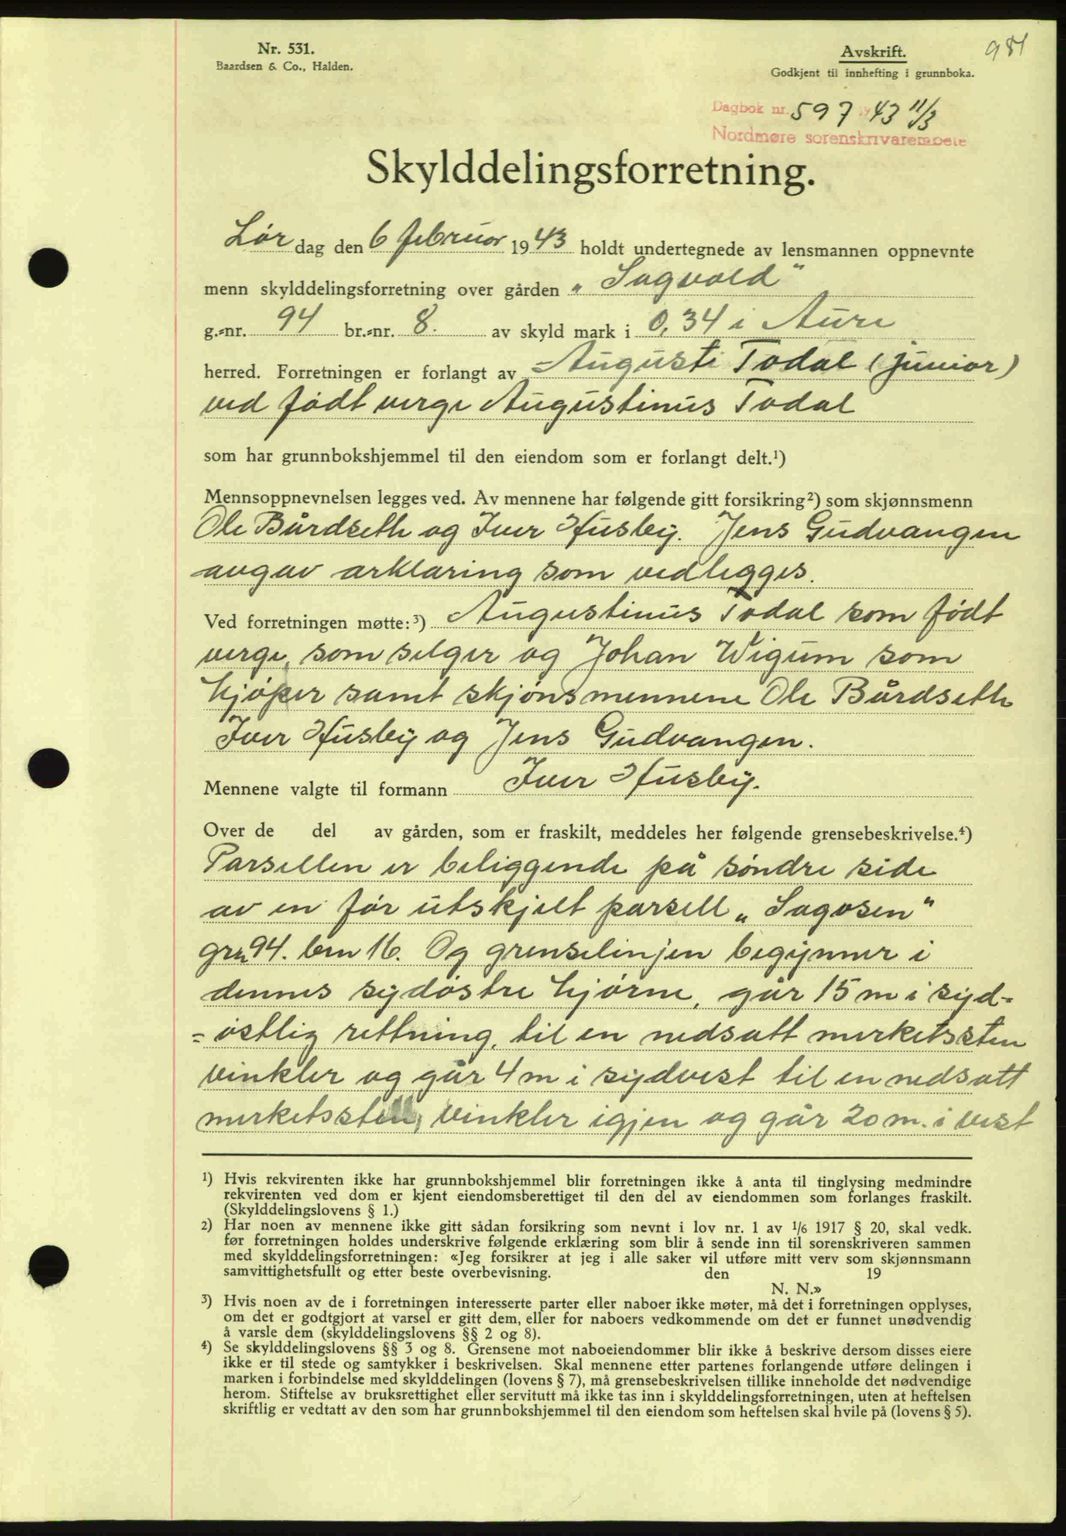 Nr. 531.
Baardsen & Co., Halden.
Avskrift.
Godkjent til innhefting i grunnboka.
981
Dagbok nr. 597 1943 11/3
Nordmøre sorenskrivarembete
Skylddelingsforretning.
Lør dag den 6 februar 1943 holdt undertegnede av lensmannen oppnevnte
menn skylddelingsforretning over gården „Sagvold"
g.-nr. 94 br.-nr. 8. av skyld mark i 0,34 i Aure
herred. Forretningen er forlangt av Augusti Todal (junior)
ved født verge Augustinus Todal
som har grunnbokshjemmel til den eiendom som er forlangt delt.¹)
Mennsoppnevnelsen legges ved. Av mennene har følgende gitt forsikring²) som skjønnsmenn
Ole Bårdseth og Iver Husby. Jens Gudvangen
avgav arklaring som vedlegges.
Ved forretningen møtte:³) Augustinus Todal som født
verge, som selger og Johan Wigum som
kjøper samt skjønsmennene Ole Bårdseth
Iver Husby og Jens Gudvangen.
Mennene valgte til formann Iver Husby.
Over de del av gården, som er fraskilt, meddeles her følgende grensebeskrivelse.⁴)
Parsellen er beliggende på søndre side
av en før utskjelt parsell „Sagosen"
grn 94. brn 16. Og grenselinjen begynner i
dennes sydøstre hjørne, går 15 m i syd-
=østlig rettning, til en nedsatt merketssten
vinkler og går 4 m i sydvest til en nedsatt
merketssten, vinkler igjen og går 20 m. i vest
¹) Hvis rekvirenten ikke har grunnbokshjemmel blir forretningen ikke å anta til tinglysing medmindre
rekvirenten ved dom er kjent eiendomsberettiget til den del av eiendommen som forlanges fraskilt.
(Skylddelingslovens § 1.)
²) Har noen av mennene ikke gitt sådan forsikring som nevnt i lov nr. 1 av 1/6 1917 § 20, skal vedk.
før forretningen holdes underskrive følgende erklæring som blir å sende inn til sorenskriveren sammen
med skylddelingsforretningen: «Jeg forsikrer at jeg i alle saker vil utføre mitt verv som skjønnsmann
samvittighetsfullt og etter beste overbevisning. den 19
N. N.»
³) Hvis noen av de i forretningen interesserte parter eller naboer ikke møter, må det i forretningen opplyses,
om det er godtgjort at varsel er gitt dem, eller for naboers vedkommende om det er funnet unødvendig
å varsle dem (skylddelingslovens §§ 2 og 8).
⁴) Se skylddelingslovens §§ 3 og 8. Grensene mot naboeiendommer blir ikke å beskrive dersom disses eiere
ikke er til stede og samtykker i beskrivelsen. Skal mennene etter partenes forlangende utføre delingen i
marken i forbindelse med skylddelingen (lovens § 7), må grensebeskrivelsen tillike inneholde det nødvendige
herom. Stiftelse av bruksrettighet eller servitutt må ikke tas inn i skylddelingsforretningen, uten at heftelsen
skriftlig er vedtatt av den som har grunnbokshjemmel til den eiendom som heftelsen skal hvile på (lovens § 5).